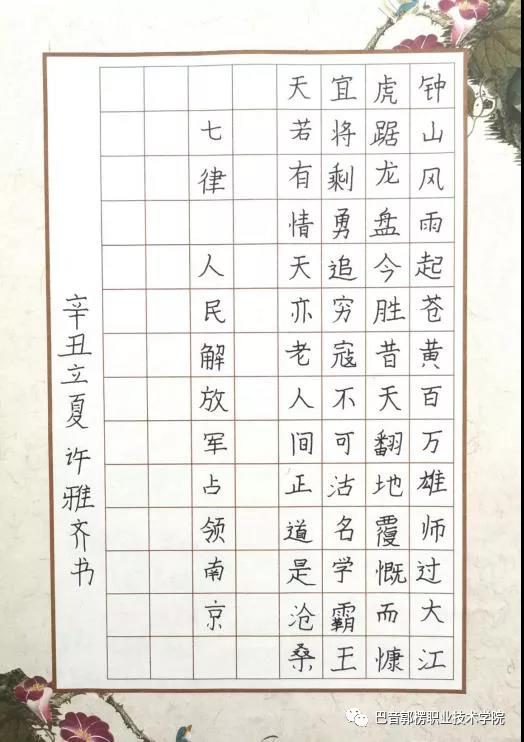 钟山风雨起苍黄百万雄师过大江
虎踞龙盘今胜昔天翻地覆慨而慷
宜将剩勇追穷寇不可沽名学霸王
天若有情天亦老人间正道是沧桑
七律 人民解放军占领南京
辛丑立夏 许雅齐书
巴音郭楞职业技术学院